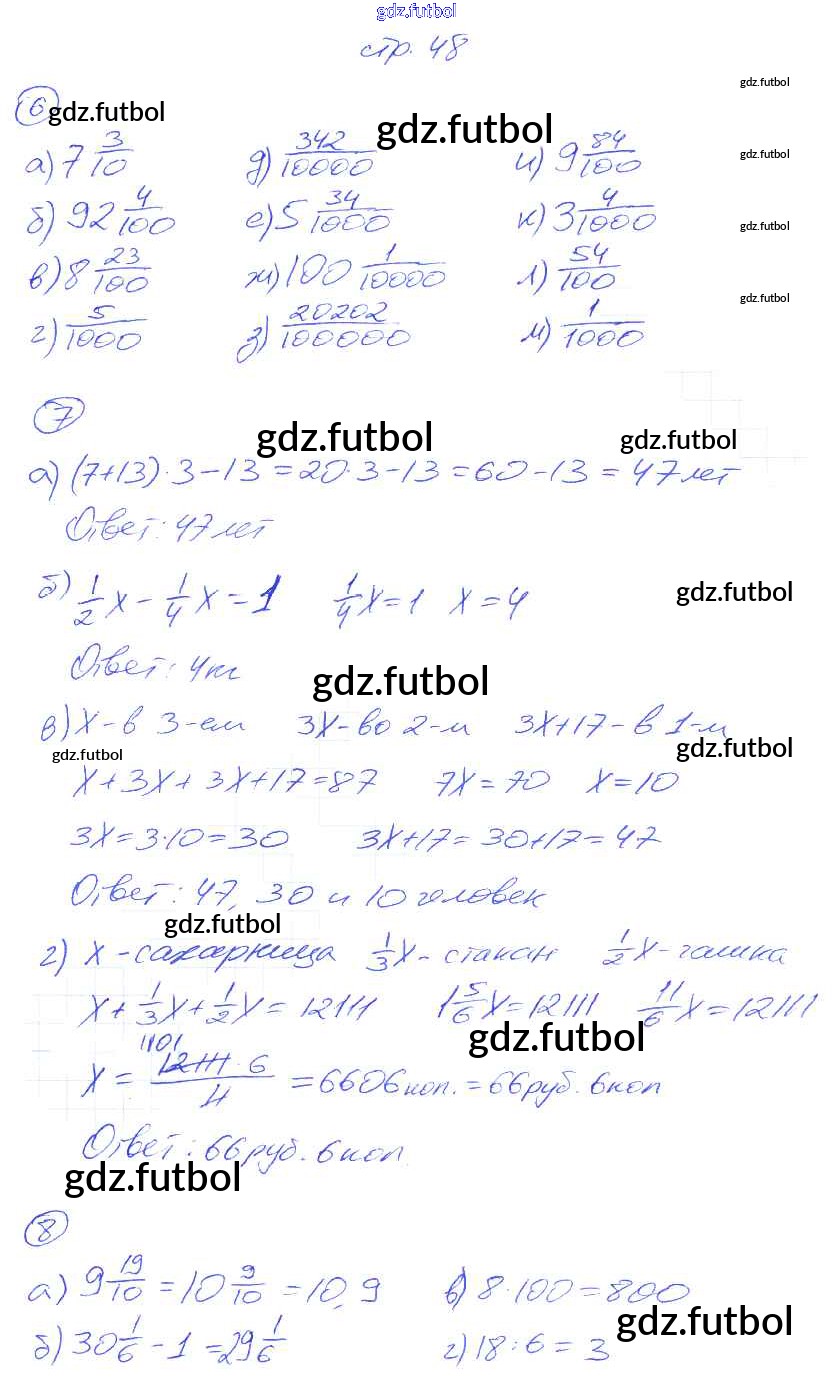 gdz.futbol
стр. 48
gdz.futbol
6 gdz.futbol
gdz.futbol
а) 7 3/10 д) 342/10000 и) 9 84/100 gdz.futbol
б) 92 4/100 е) 5 34/1000 к) 3 4/1000 gdz.futbol
в) 8 23/100 ж) 100 1/10000 л) 54/100
г) 5/1000 з) 20202/100000 м) 1/1000 gdz.futbol
7
gdz.futbol gdz.futbol
а) (7+13)·3-13=20·3-13=60-13=47 лет
Ответ: 47 лет
б) 1/2 x - 1/4 x = 1 1/4 x = 1 x = 4 gdz.futbol
Ответ: 4 кг
gdz.futbol
в) x - в 3-ем 3x - во 2-м 3x+17 - в 1-м
gdz.futbol gdz.futbol
x+3x+3x+17=87 7x=70 x=10
3x=3·10=30 3x+17=30+17=47
Ответ: 47, 30 и 10 человек
gdz.futbol
г) x - сахарница 1/3 x - стакан 1/2 x - чашка
x + 1/3 x + 1/2 x = 12111 1 5/6 x = 12111 11/6 x = 12111
gdz.futbol
1101
x = 12111·6/11 = 6606 коп. = 66 руб. 6 коп
Ответ: 66 руб. 6 коп.
gdz.futbol
8
а) 9 19/10 = 10 9/10 = 10,9 в) 8·100=800
gdz.futbol
б) 30 1/6 - 1 = 29 1/6 г) 18:6=3